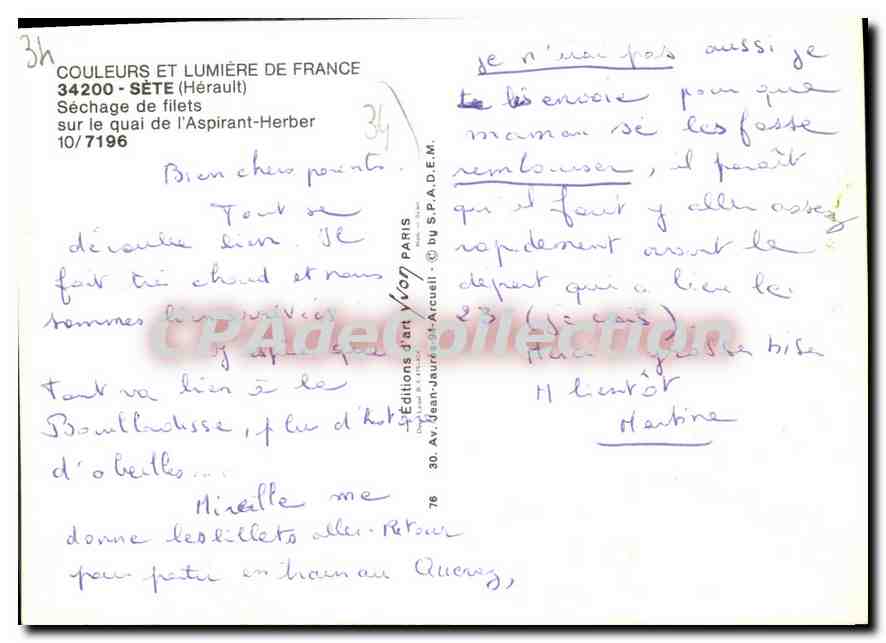 34
COULEURS ET LUMIÈRE DE FRANCE
34200 - SÈTE (Hérault)
Séchage de filets
sur le quai de l'Aspirant-Herber
10/7196
34
Bien chers parents.
Tout se
déroule bien. Il
fait très chaud et nous
sommes bien arrivés
J'espère que
Tout va bien à la
Bouilladisse, plus d'
d'abeilles...
Mireille me
donne les billets aller-Retour
pour partir en train au
Editions d'art YVON PARIS
30. Av. Jean-Jaurès-94-Arcueil - © by S.P.A.D.E.M.
76
je n'irai pas aussi je
les envoie pour que
maman se les fasse
rembourser, il paraît
qu'il faut y aller assez
rapidement avant le
départ qui a lieu le
23 (je crois)
Merci grosses bises
A bientôt
Martine
CPAdeCollection